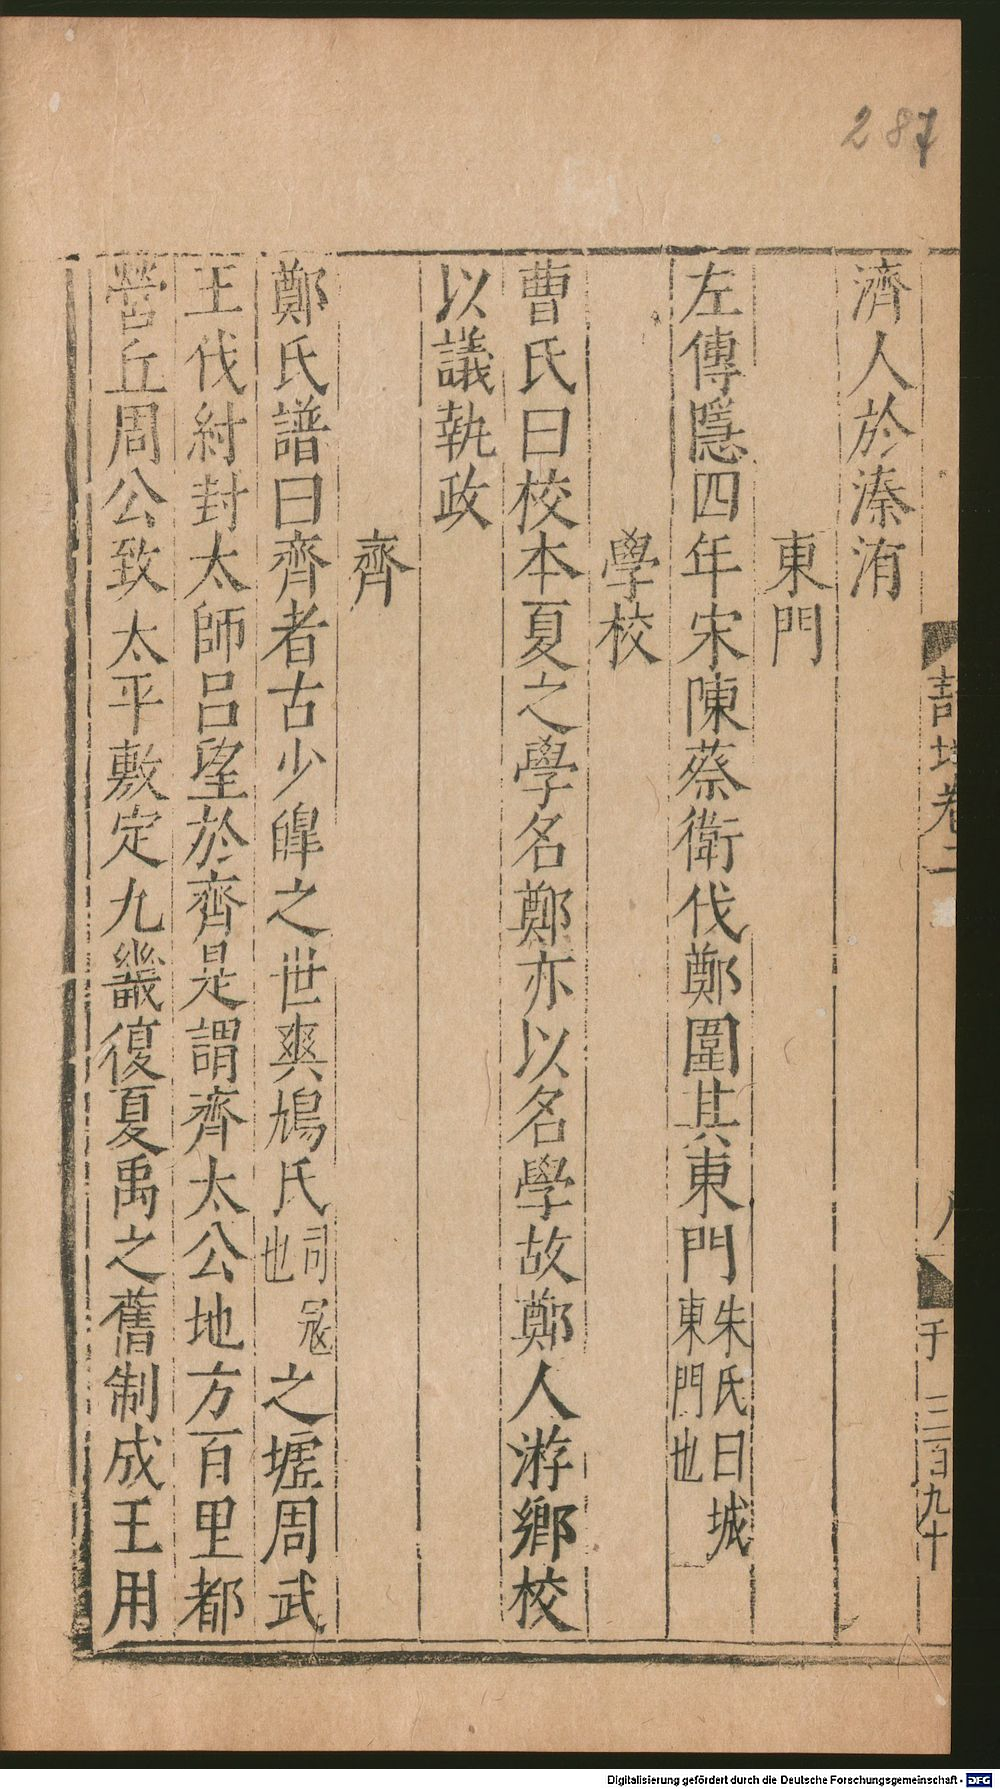 287
濟人於溱洧
東門
左傳隱四年宋陳蔡衛伐鄭圍其東門朱氏曰城東門也
學校
曹氏曰校本夏之學名鄭亦以名學故鄭人游鄉校
以議執政
齊
鄭氏譜曰齊者古少皥之世爽鳩氏司冦也之墟周武
王伐紂封太師呂望於齊是謂齊太公地方百里都
營丘周公致太平敷定九畿復夏禹之舊制成王用
卷二
八
于
三百九十
Digitalisierung gefördert durch die Deutsche Forschungsgemeinschaft - DFG